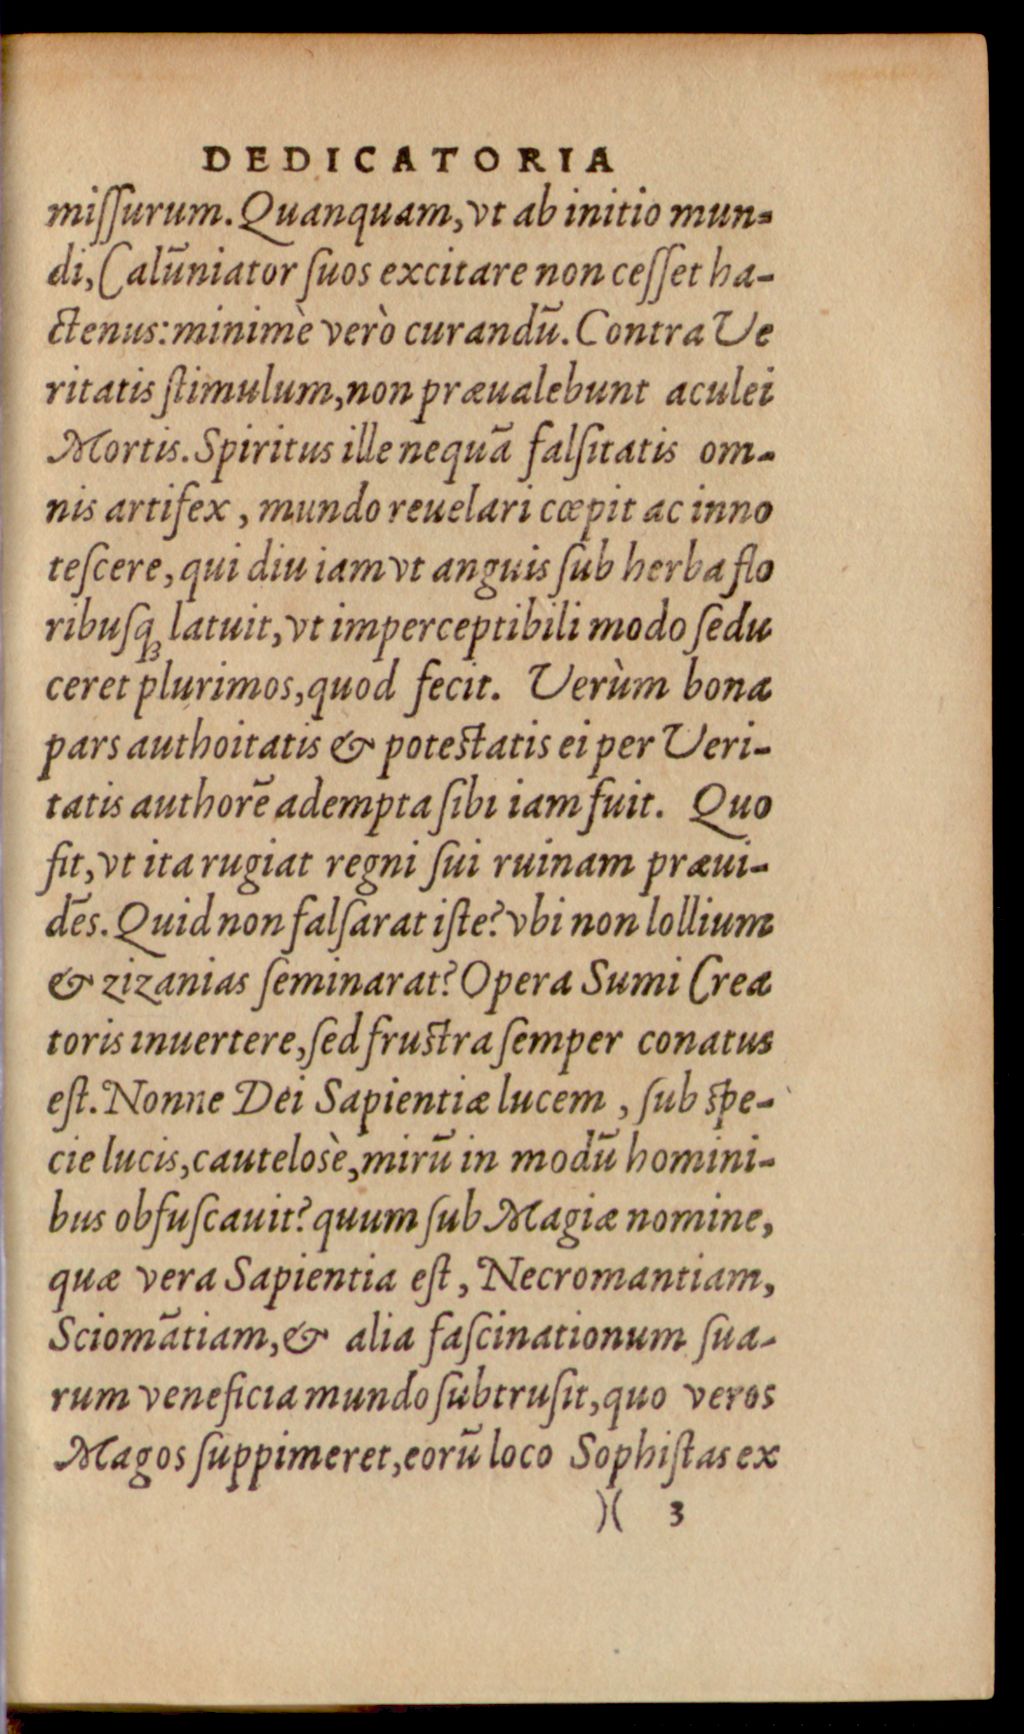 DEDICATORIA
miſſurum. Quanquam, vt ab initio mun-
di, Calũniator ſuos excitare non ceſſet ha-
ctenus: minimè verò curandũ. Contra Ve
ritatis ſtimulum, non præualebunt aculei
Mortis. Spiritus ille nequã falſitatis om-
nis artifex, mundo reuelari cœpit ac inno
teſcere, qui diu iam vt anguis ſub herba flo
ribuſq̃ latuit, vt imperceptibili modo ſedu
ceret plurimos, quod fecit. Verùm bona
pars authoitatis & poteſtatis ei per Veri-
tatis authorẽ adempta ſibi iam fuit. Quo
fit, vt ita rugiat regni ſui ruinam præui-
dẽs. Quid non falſarat iſte? vbi non lollium
& zizanias ſeminarat? Opera Sumi Crea
toris inuertere, ſed fruſtra ſemper conatus
eſt. Nonne Dei Sapientiæ lucem, ſub ſpe-
cie lucis, cautelosè, mirũ in modũ homini-
bus obfuſcauit? quum ſub Magiæ nomine,
quæ vera Sapientia eſt, Necromantiam,
Sciomãtiam, & alia faſcinationum ſua-
rum veneficia mundo ſubtruſit, quo veros
Magos ſuppimeret, eorũ loco Sophiſtas ex
)( 3